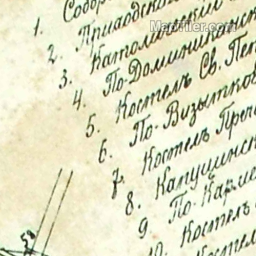 1. Собор
2. Приходскі
3. Католическій
4. По-Доминиканск
5. Костелъ Св. Пет
6. По-Визитков
7. Костелъ Пре
8. Капуцинск
9. По-Карме
10. Костелъ
Костел
58
MapTiler.com